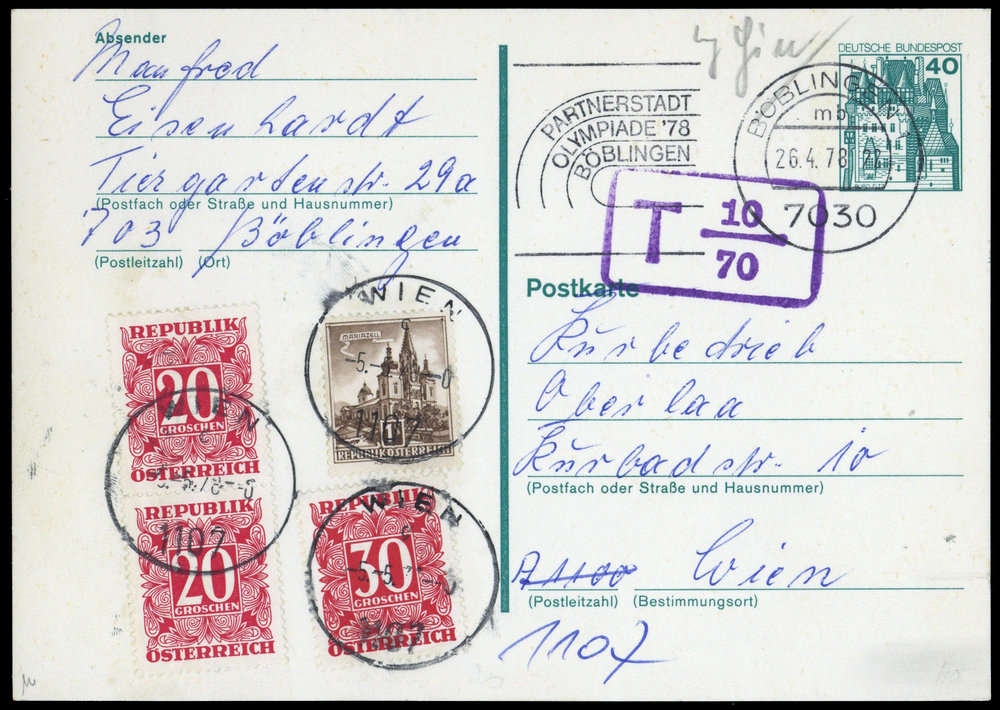 Absender
Manfred
Eisenhardt
Tiergartenstr. 29a
(Postfach oder Straße und Hausnummer)
703 Böblingen
(Postleitzahl) (Ort)
DEUTSCHE BUNDESPOST
40
PARTNERSTADT
OLYMPIADE '78
BÖBLINGEN
BÖBLINGEN
mb
26.4.78
7030
T 10
70
Postkarte
Kurbetrieb
Oberlaa
Kurbadstr. 10
(Postfach oder Straße und Hausnummer)
A 1100 Wien
(Postleitzahl) (Bestimmungsort)
1107
REPUBLIK
20
GROSCHEN
ÖSTERREICH
REPUBLIK
20
GROSCHEN
ÖSTERREICH
WIEN
1107
MARIAZELL
REPUBLIK ÖSTERREICH
WIEN
1107
REPUBLIK
30
GROSCHEN
ÖSTERREICH
WIEN
1107